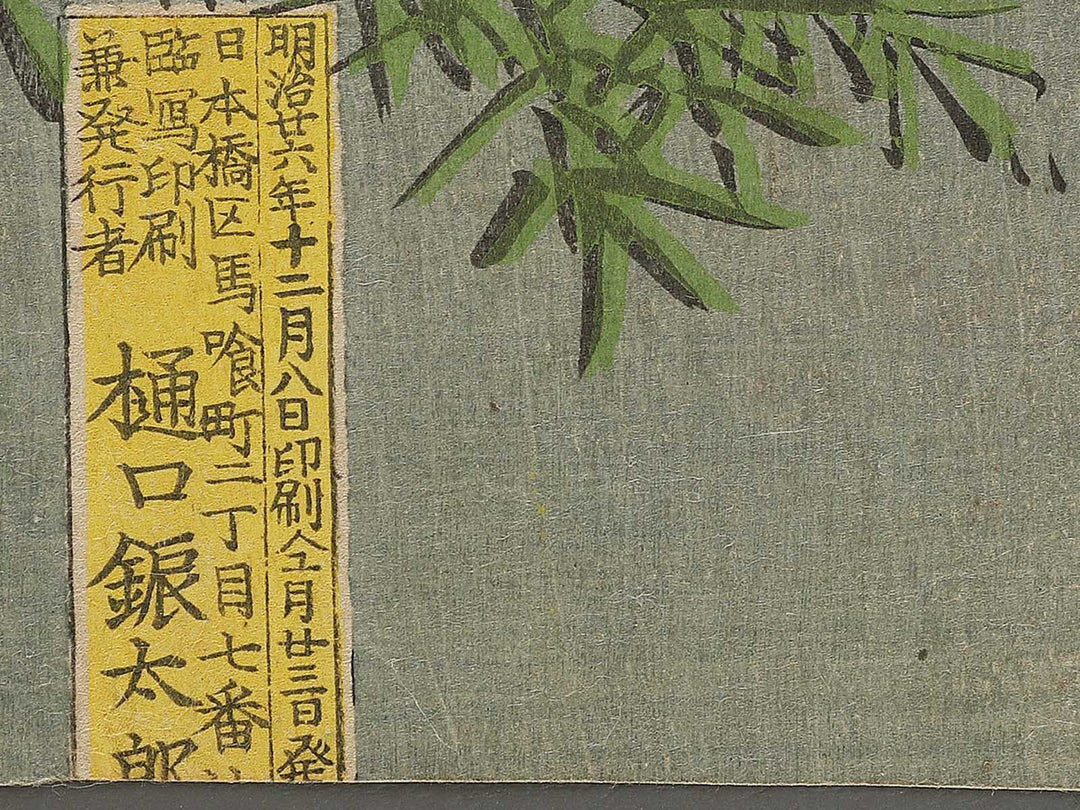 明治廿六年十二月八日印刷仝月廿三日発
日本橋区馬喰町二丁目七番
臨写印刷
兼発行者
樋口銀太郎